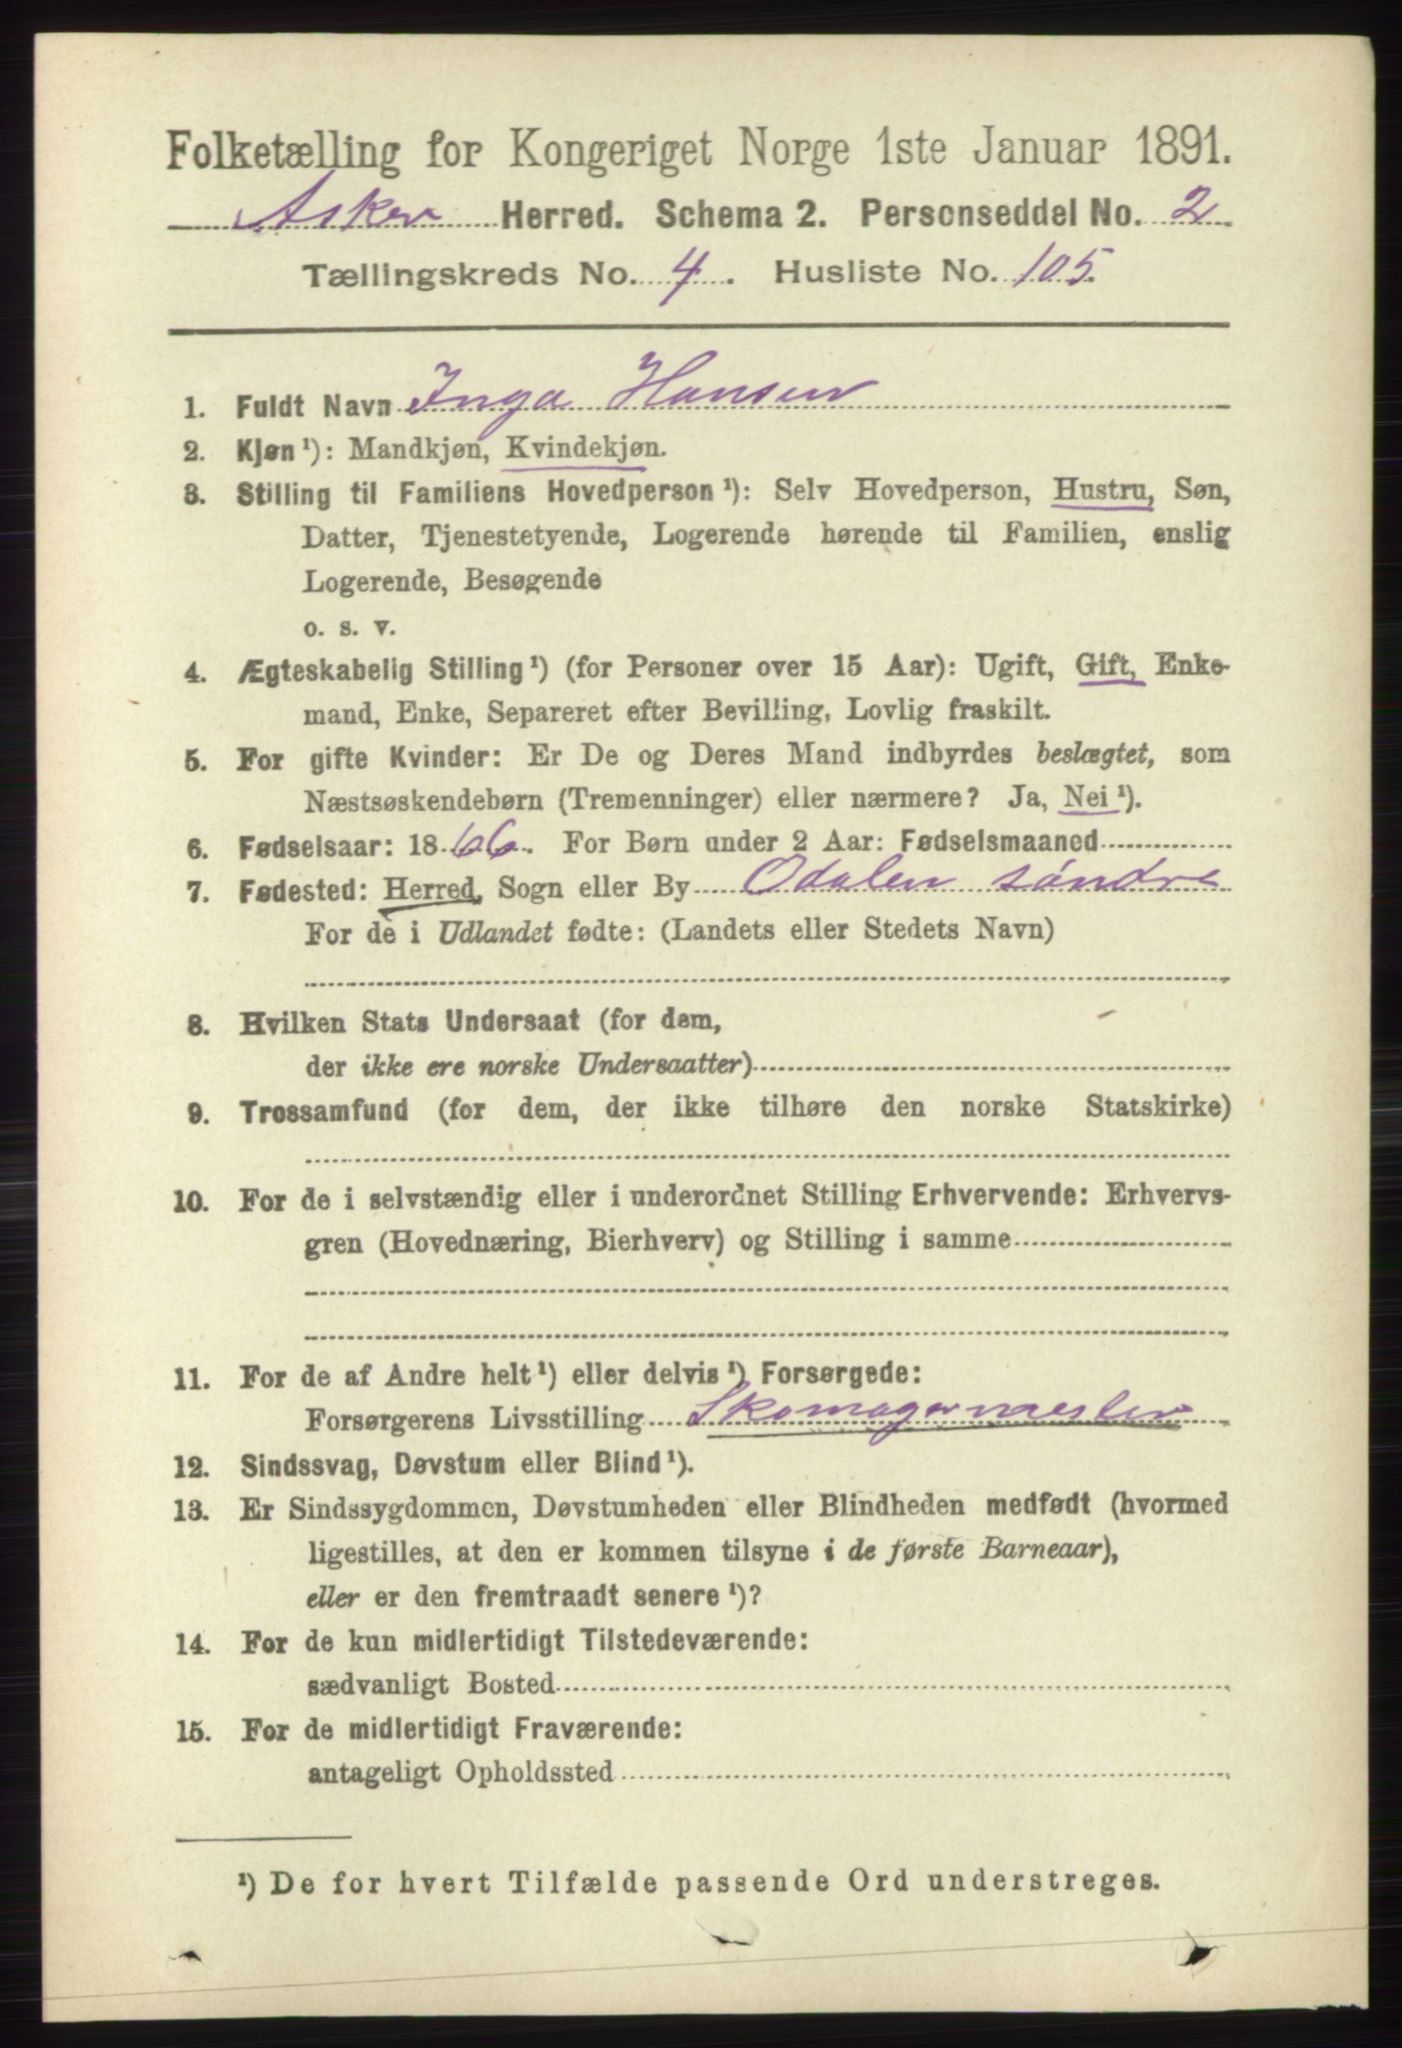 Folketælling for Kongeriget Norge 1ste Januar 1891.
Asker Herred. Schema 2. Personseddel No. 2
Tællingskreds No. 4. Husliste No. 105.
1. Fuldt Navn Inga Hansen
2. Kjøn ¹): Mandkjøn, Kvindekjøn.
3. Stilling til Familiens Hovedperson ¹): Selv Hovedperson, Hustru, Søn,
Datter, Tjenestetyende, Logerende hørende til Familien, enslig
Logerende, Besøgende
o. s. v.
4. Ægteskabelig Stilling ¹) (for Personer over 15 Aar): Ugift, Gift, Enke-
mand, Enke, Separeret efter Bevilling, Lovlig fraskilt.
5. For gifte Kvinder: Er De og Deres Mand indbyrdes beslægtet, som
Næstsøskendebørn (Tremenninger) eller nærmere? Ja, Nei ¹).
6. Fødselsaar: 1866. For Børn under 2 Aar: Fødselsmaaned
7. Fødested: Herred, Sogn eller By Odalen søndre
For de i Udlandet fødte: (Landets eller Stedets Navn)
8. Hvilken Stats Undersaat (for dem,
der ikke ere norske Undersaatter)
9. Trossamfund (for dem, der ikke tilhøre den norske Statskirke)
10. For de i selvstændig eller i underordnet Stilling Erhvervende: Erhvervs-
gren (Hovednæring, Bierhverv) og Stilling i samme
11. For de af Andre helt ¹) eller delvis ¹) Forsørgede:
Forsørgerens Livsstilling Skomagermester
12. Sindssvag, Døvstum eller Blind ¹).
13. Er Sindssygdommen, Døvstumheden eller Blindheden medfødt (hvormed
ligestilles, at den er kommen tilsyne i de første Barneaar),
eller er den fremtraadt senere ¹)?
14. For de kun midlertidigt Tilstedeværende:
sædvanligt Bosted
15. For de midlertidigt Fraværende:
antageligt Opholdssted
¹) De for hvert Tilfælde passende Ord understreges.